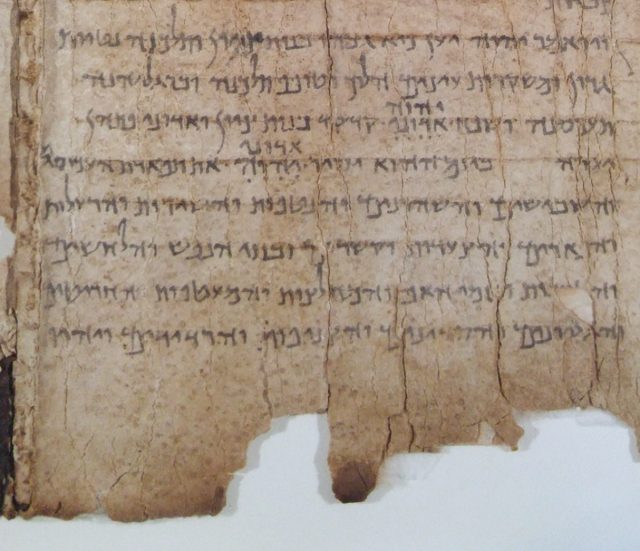 צבאות
ויואמר יהוה יען כיא גבהו בנות ציון ותלכנה נטוות
גרון ומשקרות עינים הלוך וטופף תלכנה וברגליהנה
יהוה
תעכסנה ושפח אדוני קדקד בנות ציון ואדוני פתהן
אדוני
יערה ביום ההוא יסיר יהוה את תפארת העכסים
והשבישים והשהרונים והנטפות והשירות והרעלות
והפארים והצעדות והקשרים ובתי הנפש והלחשים
והטבעות ונזמי האף והמחלצות והמעטפות
והגליונים והסדינים והצניפות והרדידים ויהיו